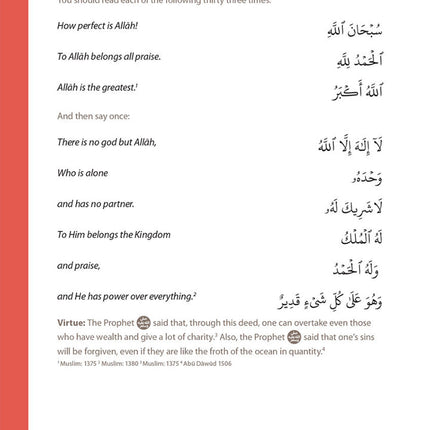 You should read each of the following thirty three times:
How perfect is Allāh! سُبْحَانَ ٱللَّهِ
To Allāh belongs all praise. ٱلْحَمْدُ لِلَّهِ
Allāh is the greatest.¹ ٱللَّهُ أَكْبَرُ
And then say once:
There is no god but Allāh, لَآ إِلَٰهَ إِلَّا ٱللَّهُ
Who is alone وَحْدَهُۥ
and has no partner. لَا شَرِيكَ لَهُۥ
To Him belongs the Kingdom لَهُ ٱلْمُلْكُ
and praise, وَلَهُ ٱلْحَمْدُ
and He has power over everything.² وَهُوَ عَلَىٰ كُلِّ شَىْءٍ قَدِيرٌ
Virtue: The Prophet ﷺ said that, through this deed, one can overtake even those
who have wealth and give a lot of charity.³ Also, the Prophet ﷺ said that one's sins
will be forgiven, even if they are like the froth of the ocean in quantity.⁴
¹ Muslim: 1375 ² Muslim: 1380 ³ Muslim: 1375 ⁴ Abū Dāwūd 1506